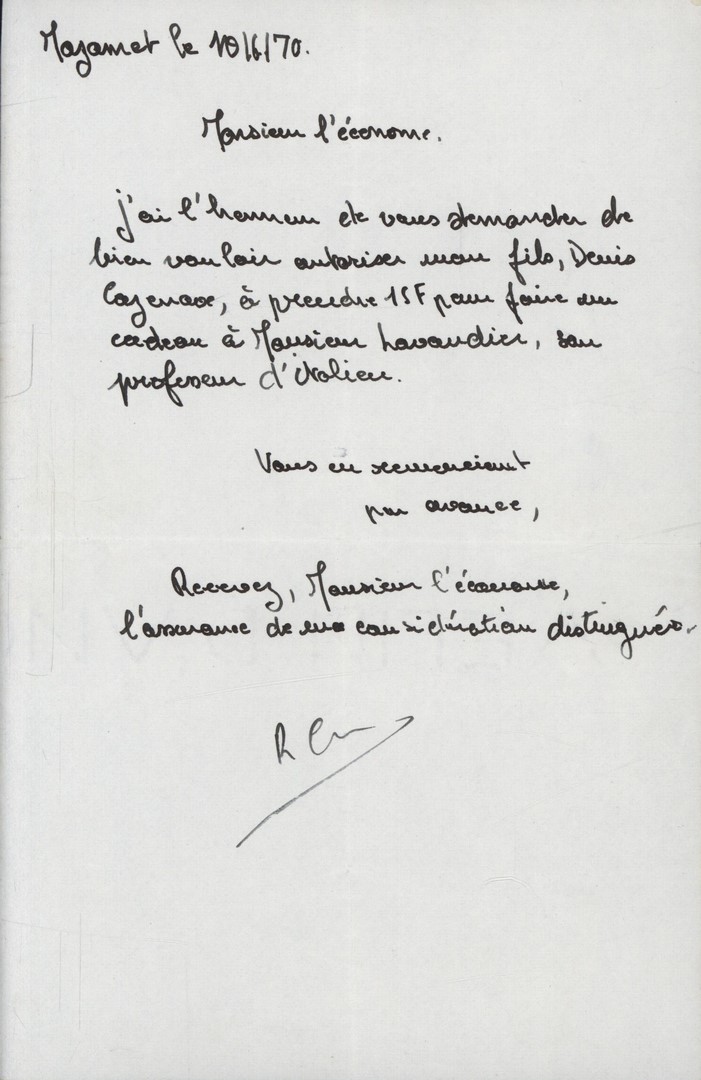 Mazamet le 10/6/70.
Monsieur l'économe.
J'ai l'honneur de vous demander de
bien vouloir autoriser mon fils, Denis
Cazenave, à prendre 15F pour faire un
cadeau à Monsieur Lavaudier, son
professeur d'italien.
Vous en remerciant
par avance,
Recevez, Monsieur l'économe,
l'assurance de ma considération distinguée.